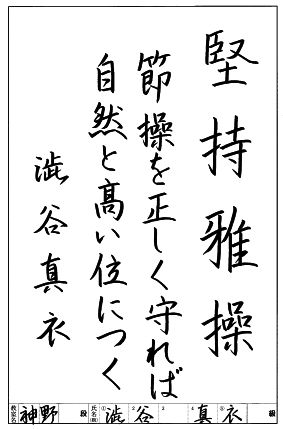 堅持雅操
節操を正しく守れば
自然と高い位につく
澁谷真衣
教室名 神野 段 氏名(段) ① 澁 2 谷 3 4 真 ⑤ 衣 級